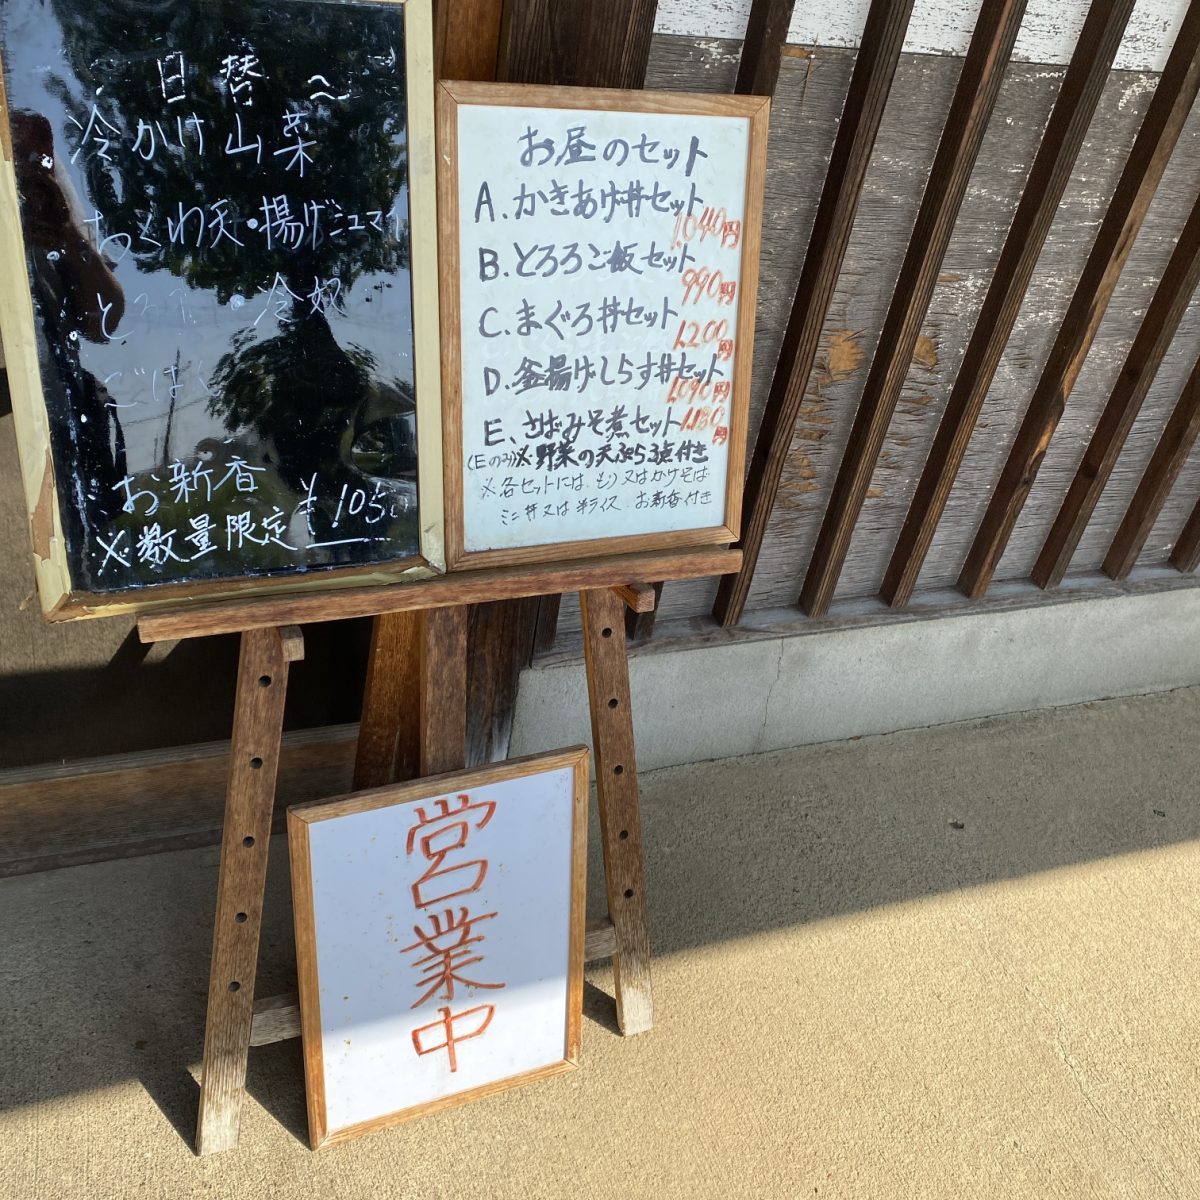 日替〜
冷かけ山菜
ちくわ天・揚げシュウマイ
・冷奴
ごはん
お新香
※数量限定 ¥105
お昼のセット
A. かきあげ丼セット
1.040円
B. とろろご飯セット
990円
C. まぐろ丼セット
1.200円
D. 釜揚げしらす丼セット
1.090円
E. さばみそ煮セット 1.180円
(Eのみ)※野菜の天ぷら3点付き
※各セットには、もり又はかけそば
ミニ丼又は半ライス お新香付き
営業中